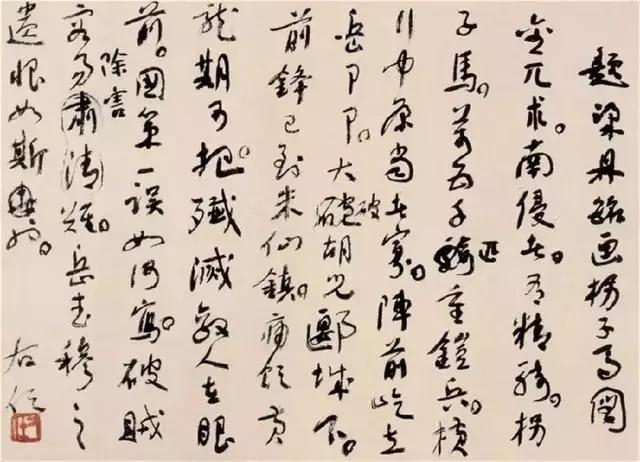 題梁鼎銘画拐子馬圖
金兀朮。南侵者。有精騎。拐
子馬。万五千騎匹重鎧兵。横
行中原當者寡。陣前屹立
岳卩卩。大破胡兒郾城下。
前鋒已到朱仙鎮。痛飲黄
龍期可把。殲滅敵人在眼
前。國策一誤如何寫。破賊
除害
容易肅清難。岳武穆之
遺恨如斯
右任